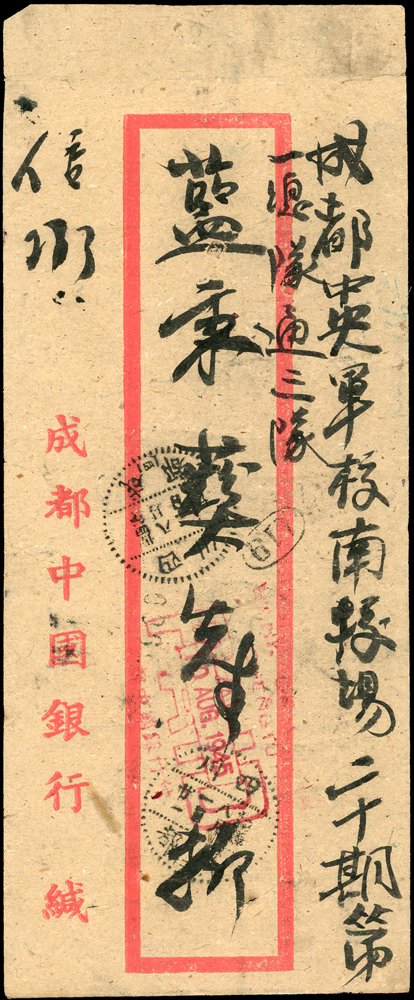 成都中央軍校南較場二十期第
一總隊通三隊
藍秉葵先生
信
成都中國銀行 緘
AUG. 1945